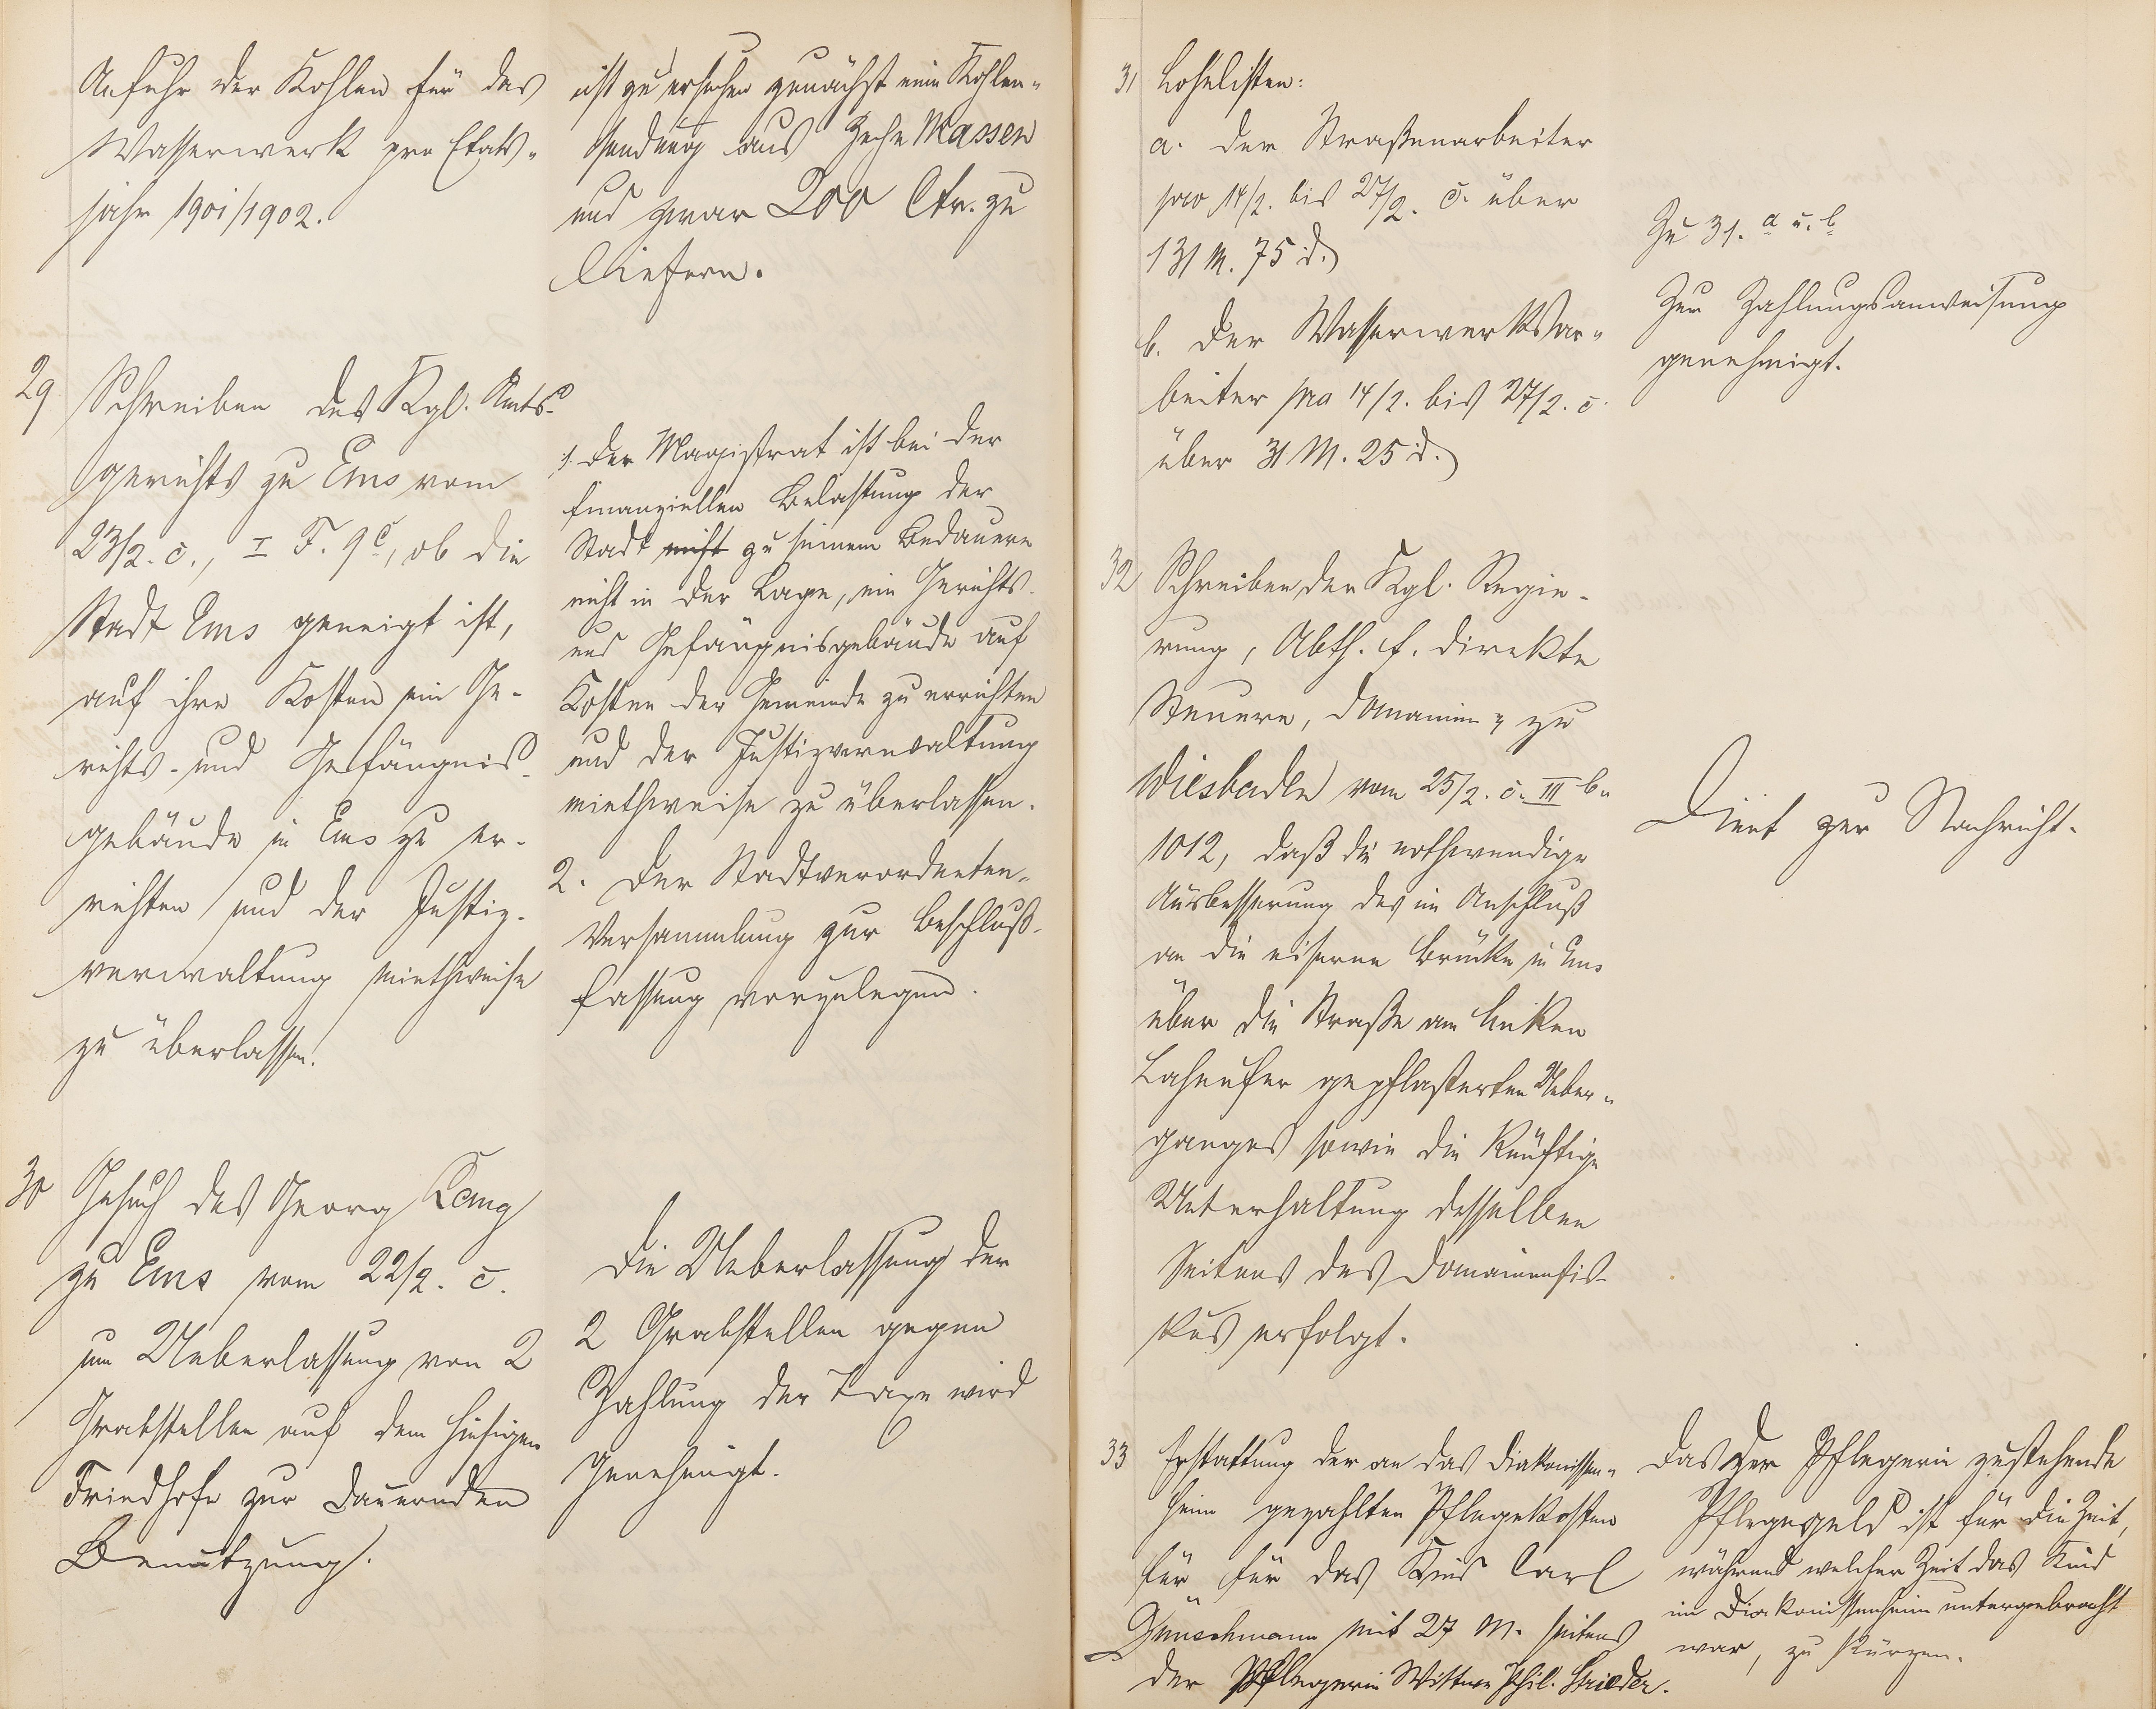 Anfuhr der Kohlen für das
Wasserwerk pro Etats-
jahr 1901/1902.
ist zu ersuchen zunächst eine Kohlen-
sendung aus Zeche Massen
und zwar 200 Ctr. zu
liefern.
29 Schreiben des Kgl. Amts-
gerichts zu Ems vom
23/2. c., I F. 9c, ob die
Stadt Ems geneigt ist,
auf ihre Kosten ein Ge-
richts- und Gefängnis-
gebäude in Ems zu er-
richten und der Justiz-
verwaltung miethweise
zu überlassen.
1. Der Magistrat ist bei der
finanziellen Belastung der
Stadt nicht zu seinem Bedauern
nicht in der Lage, ein Gerichts-
und Gefängnisgebäude auf
Kosten der Gemeinde zu errichten
und der Justizverwaltung
miethweise zu überlassen.
2. Der Stadtverordneten-
Versammlung zur Beschluß-
fassung vorzulegen.
30 Gesuch des Georg Lang
zu Ems vom 22/2. c.
um Ueberlassung von 2
Grabstellen auf dem hiesigen
Friedhofe zur dauernden
Benutzung.
Die Ueberlassung der
2 Grabstellen gegen
Zahlung der Taxe wird
genehmigt.
31 Lohnlisten:
a. der Straßenarbeiter
pro 14/2. bis 27/2. c. über
131 M. 75 d.
b. der Wasserwerksar-
beiter pro 14/2. bis 27/2. c.
über 31 M. 25 d.
Zu 31. a u. b
Zur Zahlungsanweisung
genehmigt.
32 Schreiben der Kgl. Regie-
rung, Abth. f. direkte
Steuern, Domainen zu
Wiesbaden vom 25/2. c. III b.
1012, daß die nothwendige
Ausbesserung des im Anschluß
an die eiserne Brücke in Ems
über die Straße am linken
Lahnufer gepflasterten Ueber-
ganges sowie die künftige
Unterhaltung desselben
Seitens des Domainenfis-
kus erfolgt.
Dient zur Nachricht.
33 Erstattung der an das Diakonissen-
heim gezahlten Pflegekosten
für für das Kind Carl
mit 27 M. seitens
der Pflegerin Wittwe Phil. Strieder.
Das der Pflegerin zustehende
Pflegegeld ist für die Zeit,
während welcher Zeit das Kind
im Diakonissenheim untergebracht
war, zu kürzen.